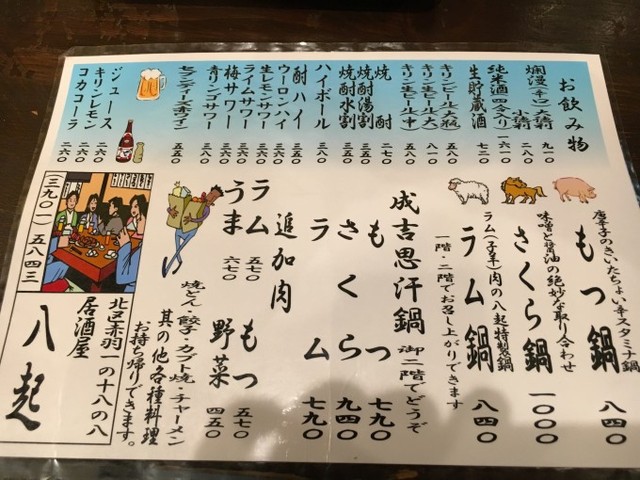 お飲み物
爛漫(辛口)大徳利 九一〇
小徳利 二六〇
純米酒(四合入り) 二一八〇
生貯蔵酒 七二〇
キリンビール(大瓶) 五八〇
キリン生ビール(大) 八一〇
キリン生ビール(中) 五五〇
焼酎 二七〇
焼酎湯割 三五〇
焼酎水割 三五〇
ハイボール 三八〇
酎ハイ 三五〇
ウーロンハイ 三五〇
生レモンサワー 三八〇
ライムサワー 三六〇
梅サワー 三六〇
青リンゴサワー 三六〇
セブンティーズ赤ワイン 五五〇
ジュース
キリンレモン 二六〇
コカコーラ 二六〇
唐辛子のきいたちょい辛スタミナ鍋
もつ鍋 八四〇
味噌と醤油の絶妙な取り合わせ
さくら鍋 一〇〇〇
ラム(子羊)肉の八起特製鍋
ラム鍋 八四〇
一階・二階でお召し上がりできます
成吉思汗鍋 御二階でどうぞ
もつ 七九〇
さくら 九四〇
ラム 七九〇
追加肉
ラム 五七〇
もつ 五七〇
うま 六七〇
野菜 四五〇
焼とん・餃子・タフト焼・チャーメン
其の他各種料理
お持ち帰りできます。
(三九〇一)五八四三
北区赤羽一の十八の八
居酒屋
八起